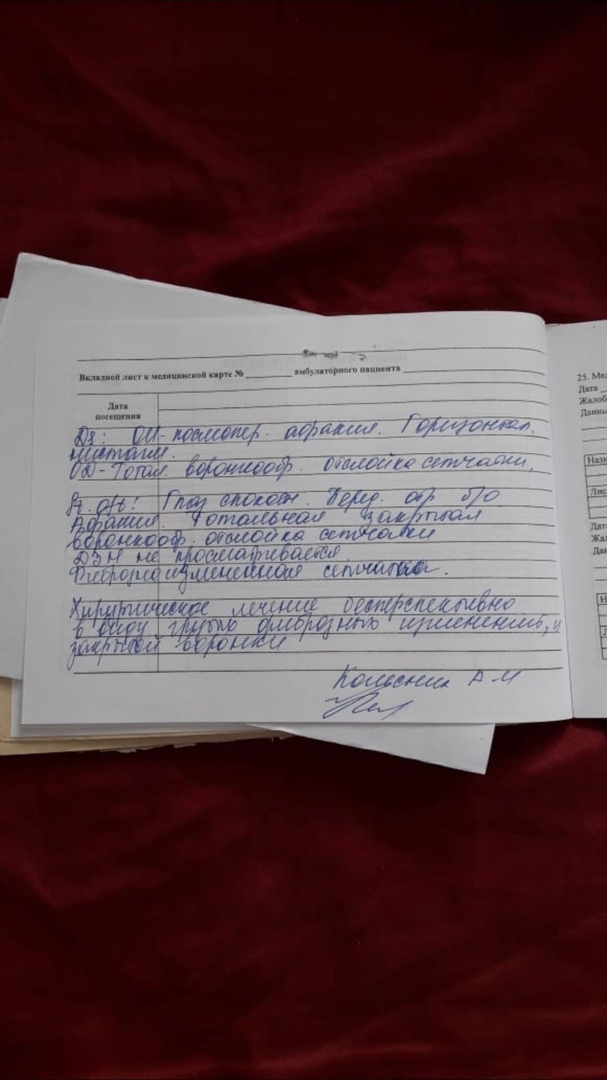 Вкладной лист к медицинской карте № ________ амбулаторного пациента ________
Дата
посещения
Ds: ОИ-послеопер. афакия. Горизонтал.
нистагм.
OD-Тотал. воронкообр. отслойка сетчатки.
Глаз спокоен. Перед. отр б/о
Афакия. Тотальная закрытая
воронкооб. отслойка сетчатки
ДЗН не просматривается.
Фиброзно измененная сетчатка.
Хирургическое лечение бесперспективно
в виду грубых фиброзных изменений, и
закрытой воронки
Колесник А М
25. Мед
Дата
Жалоб
Данны
Назн
Лис
Дата
Жал
Дан
Н